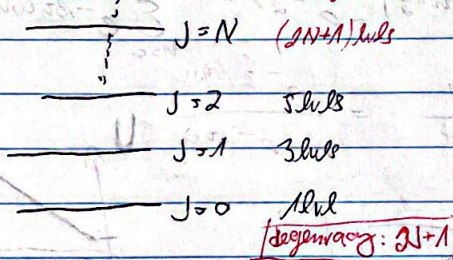 J=N (2N+1) lvls
J=2 5 lvls
J=1 3 lvls
J=0 1 lvl
degenracy: 2J+1